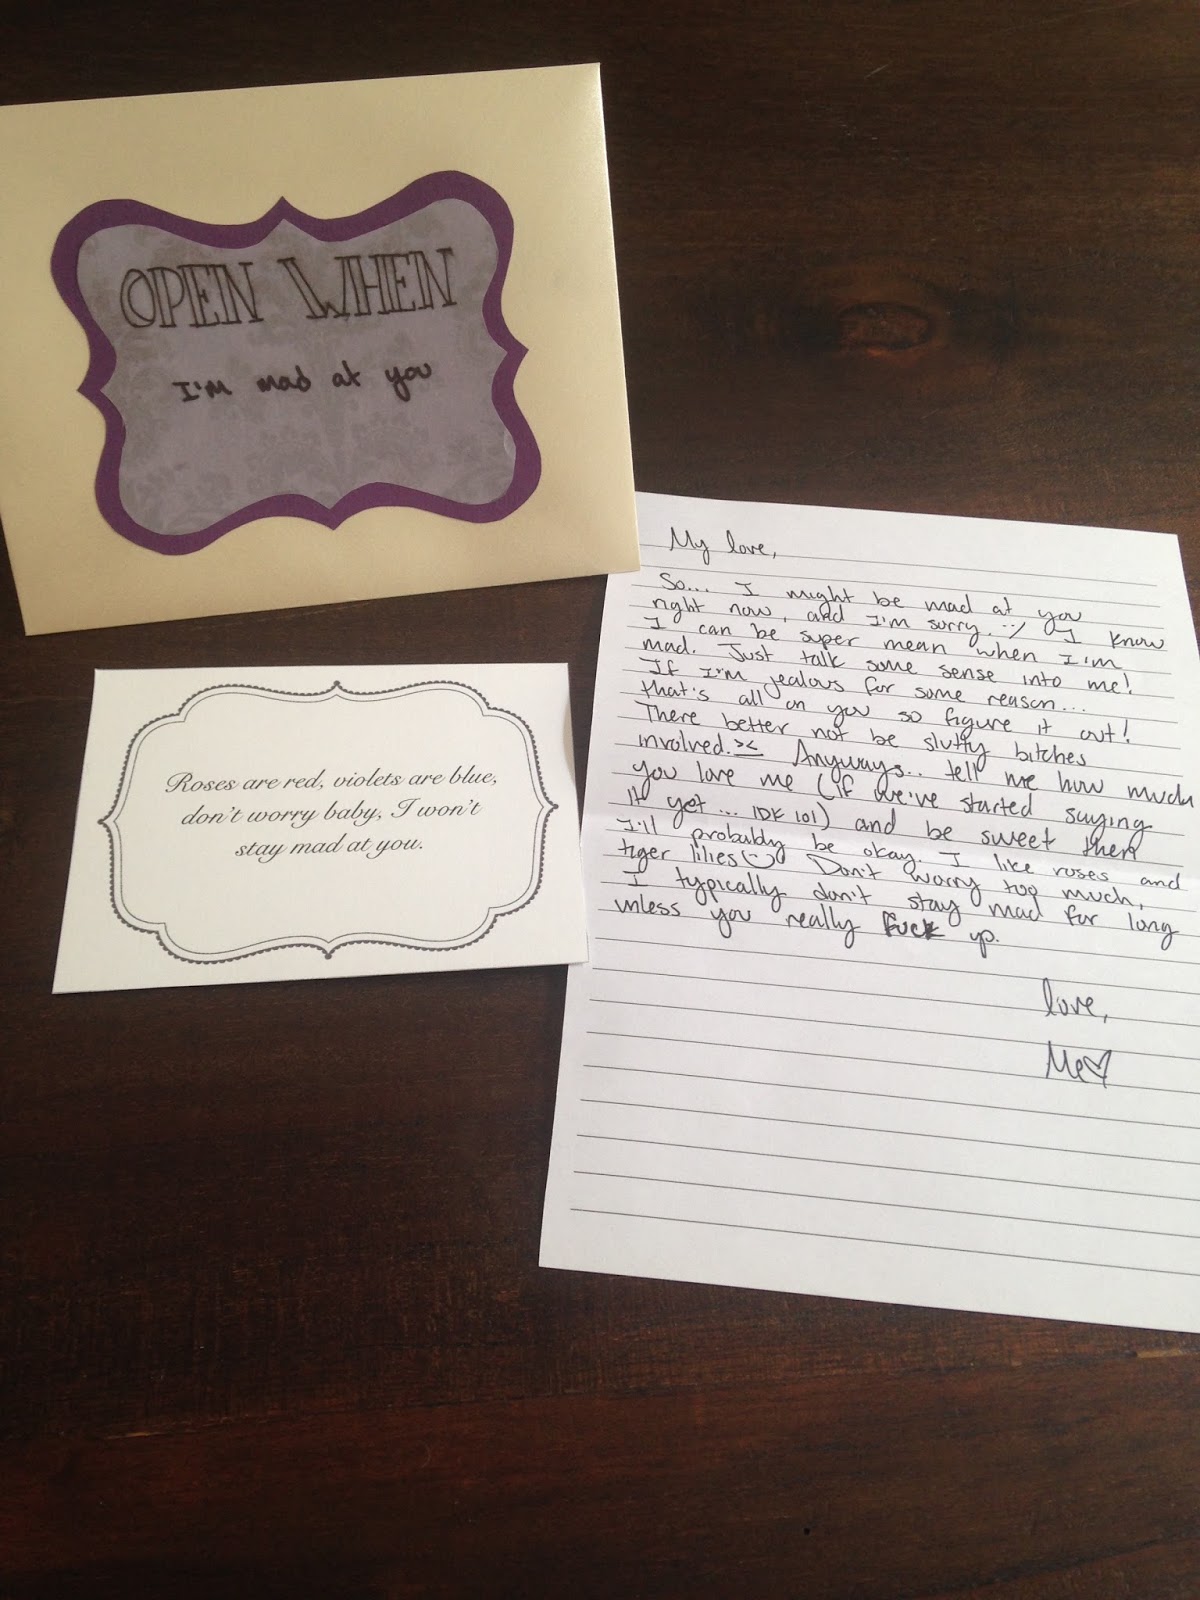 OPEN WHEN
I'm mad at you
Roses are red, violets are blue,
don't worry baby, I won't
stay mad at you.
My love,
So... I might be mad at you
right now, and I'm sorry. :/ I know
I can be super mean when I'm
mad. Just talk some sense into me!
If I'm jealous for some reason...
that's all on you so figure it out!
There better not be slutty bitches
involved. >< Anyways.. tell me how much
you love me (if we've started saying
it yet... IDK lol) and be sweet then
I'll probably be okay. I like roses and
tiger lilies (: Don't worry too much,
I typically don't stay mad for long
unless you really fuck up.
love,
Me♡